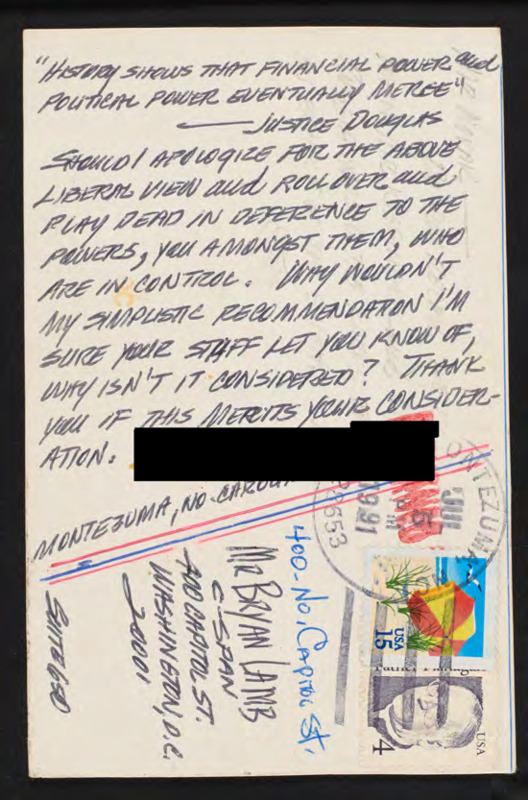 "HISTORY SHOWS THAT FINANCIAL POWER and
POLITICAL POWER EVENTUALLY MERGE"
— JUSTICE DOUGLAS
SHOULD I APOLOGIZE FOR THE ABOVE
LIBERAL VIEW and ROLL OVER and
PLAY DEAD IN DEFERENCE TO THE
POWERS, YOU AMONGST THEM, WHO
ARE IN CONTROL. WHY WOULDN'T
MY SIMPLISTIC RECOMMENDATION I'M
SURE YOUR STAFF LET YOU KNOW OF,
WHY ISN'T IT CONSIDERED? THANK
YOU IF THIS MERITS YOUR CONSIDER-
ATION.
MONTEZUMA, NO. CAROLINA
MONTEZUMA
JUL
5
1991
28653
400-NO. CAPITOL ST.
MR BRYAN LAMB
C-SPAN
400 CAPITOL ST.
WASHINGTON, D.C.
20001
SUITE 650
USA
15
Father Flanagan
4
USA